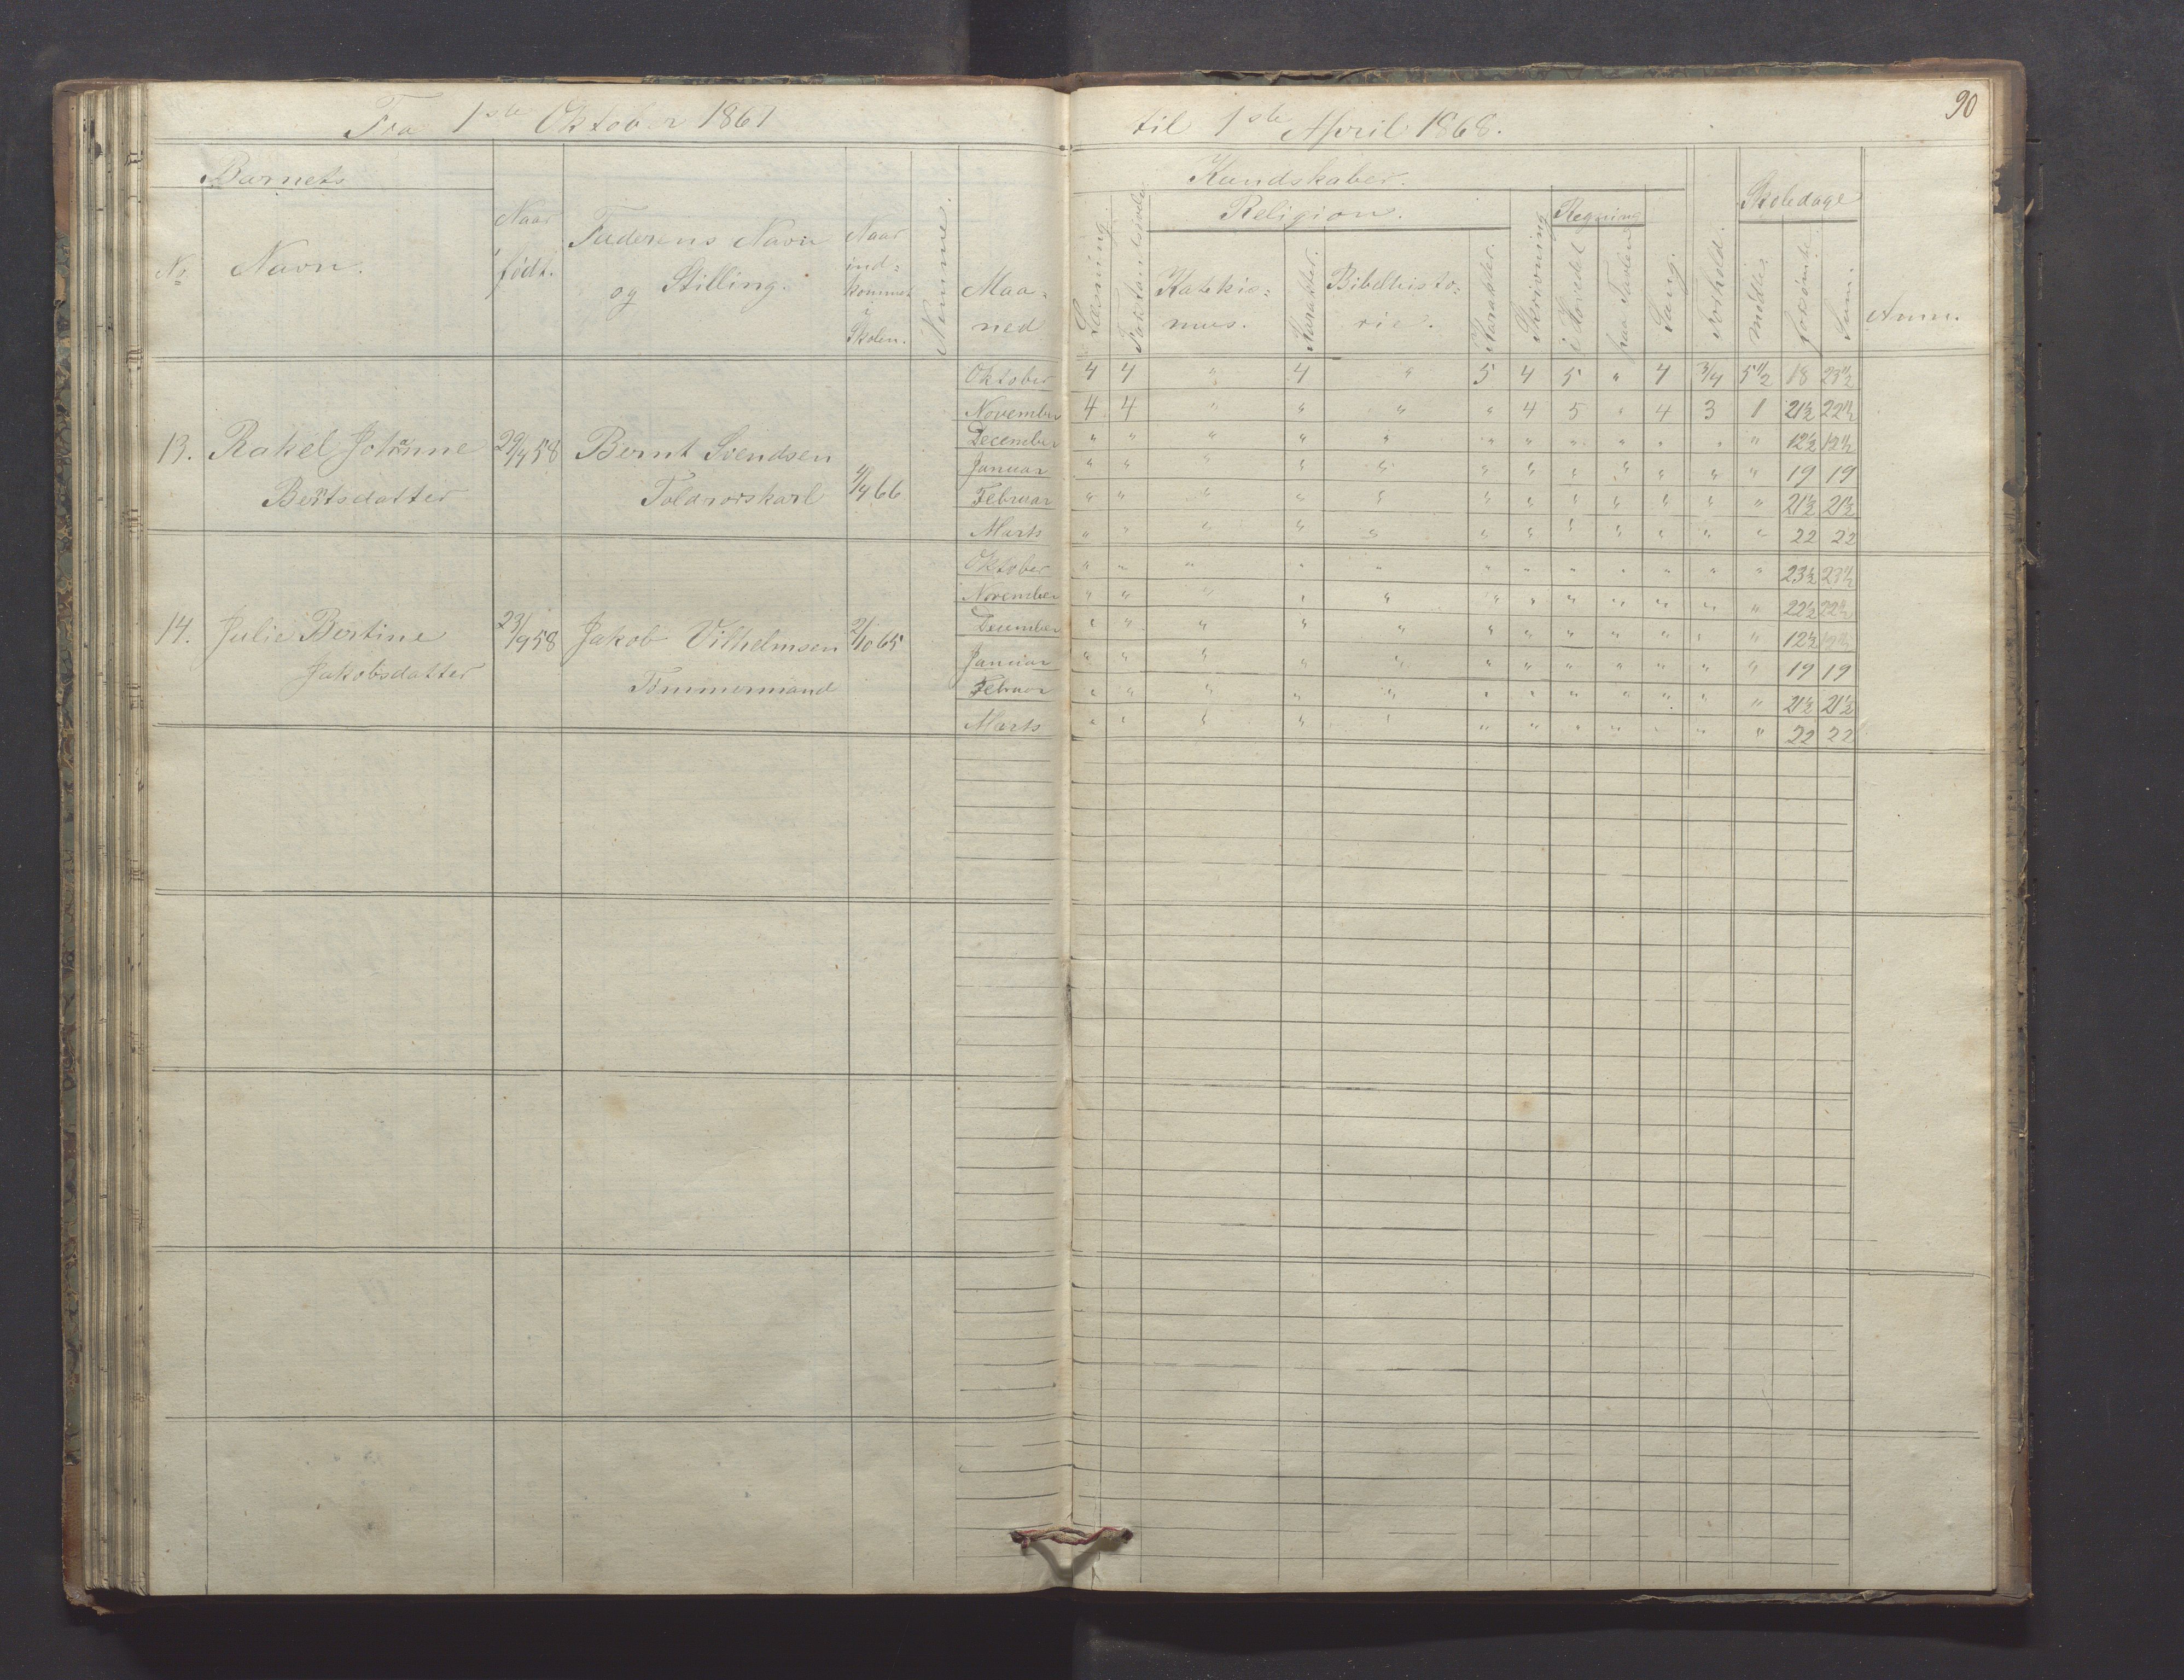 90
Fra 1ste Oktober 1867 til 1ste April 1868.
Barnets Kundskaber. Skoledage
No Navn. Naar født. Faderens Navn og Stilling. Naar ind= kommet i Skolen. Nemme. Maa= ned Læsning. Religion. Katekis= mus. Karakter. Bibelhisto= rie. Karakter. Skrivning Regning i Hovedet paa Tavlen Sang. Forhold. mødte. forsømte. Sum. Anm.
Oktober 4 4 " 4 " 5 4 5 " 4 3/4 5 1/2 18 23 1/2
November 4 4 " " " " 4 5 " 4 3 1 21 1/2 22 1/2
13. Rakel Johanne 29/4 58 Bernt Svendsen December " " " " " " " " " " " " 12 1/2 12 1/2
Januar " " " " " " " " " " " " 19 19
Berntsdatter Toldrorskarl 4/4 66 Februar " " " " " " " " " " " " 21 1/2 21 1/2
Marts " " " " " " " " " " " " 22 22
Oktober " " " " " " " " " " " " 23 1/2 23 1/2
November " " " " " " " " " " " " 22 1/2 22 1/2
14. Julie Bertine 23/9 58 Jakob Vilhelmsen 2/10 65 December " " " " " " " " " " " " 12 1/2 12 1/2
Jakobsdatter Januar " " " " " " " " " " " " 19 19
Tømmermand Februar " " " " " " " " " " " " 21 1/2 21 1/2
Marts " " " " " " " " " " " " 22 22